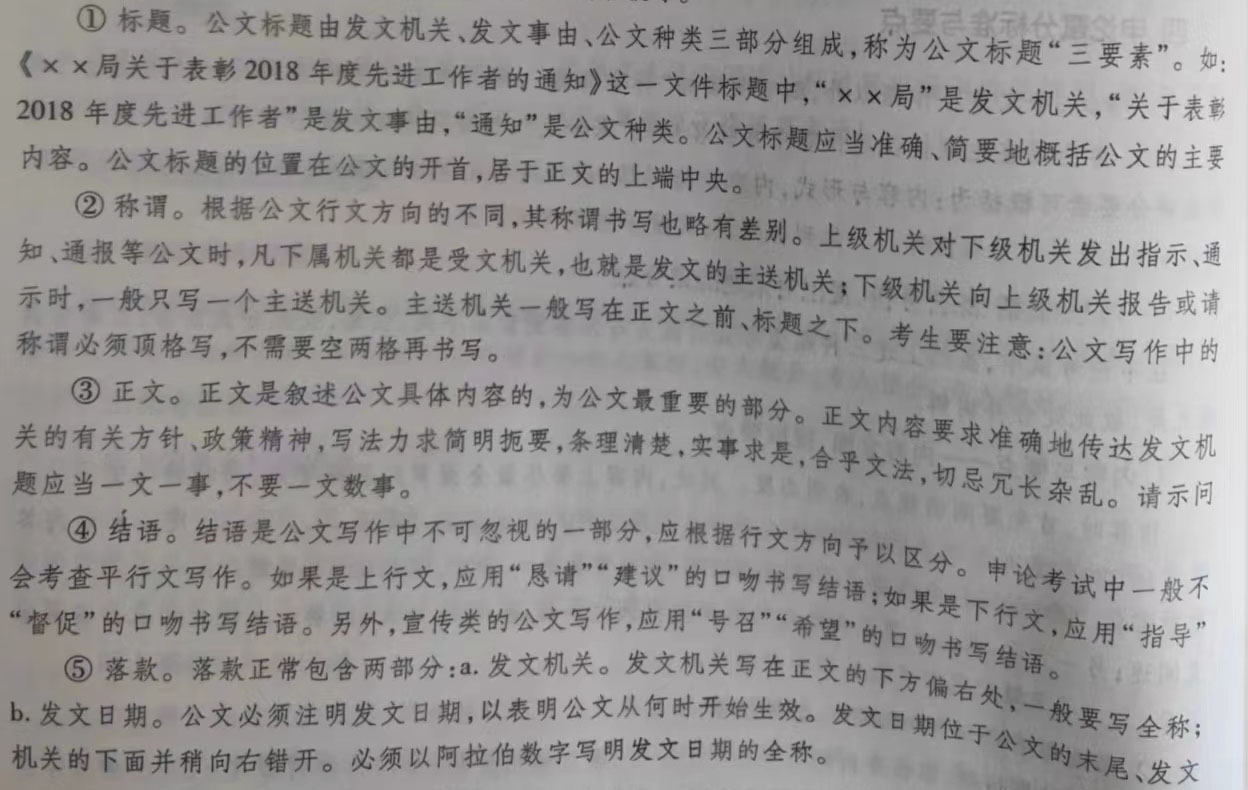 ① 标题。公文标题由发文机关、发文事由、公文种类三部分组成,称为公文标题“三要素”。如:
《××局关于表彰2018年度先进工作者的通知》这一文件标题中,“××局”是发文机关,“关于表彰
2018年度先进工作者”是发文事由,“通知”是公文种类。公文标题应当准确、简要地概括公文的主要
内容。公文标题的位置在公文的开首,居于正文的上端中央。
② 称谓。根据公文行文方向的不同,其称谓书写也略有差别。上级机关对下级机关发出指示、通
知、通报等公文时,凡下属机关都是受文机关,也就是发文的主送机关;下级机关向上级机关报告或请
示时,一般只写一个主送机关。主送机关一般写在正文之前、标题之下。考生要注意:公文写作中的
称谓必须顶格写,不需要空两格再书写。
③ 正文。正文是叙述公文具体内容的,为公文最重要的部分。正文内容要求准确地传达发文机
关的有关方针、政策精神,写法力求简明扼要,条理清楚,实事求是,合乎文法,切忌冗长杂乱。请示问
题应当一文一事,不要一文数事。
④ 结语。结语是公文写作中不可忽视的一部分,应根据行文方向予以区分。申论考试中一般不
会考查平行文写作。如果是上行文,应用“恳请”“建议”的口吻书写结语;如果是下行文,应用“指导”
“督促”的口吻书写结语。另外,宣传类的公文写作,应用“号召”“希望”的口吻书写结语。
⑤ 落款。落款正常包含两部分:a. 发文机关。发文机关写在正文的下方偏右处,一般要写全称;
b. 发文日期。公文必须注明发文日期,以表明公文从何时开始生效。发文日期位于公文的末尾、发文
机关的下面并稍向右错开。必须以阿拉伯数字写明发文日期的全称。